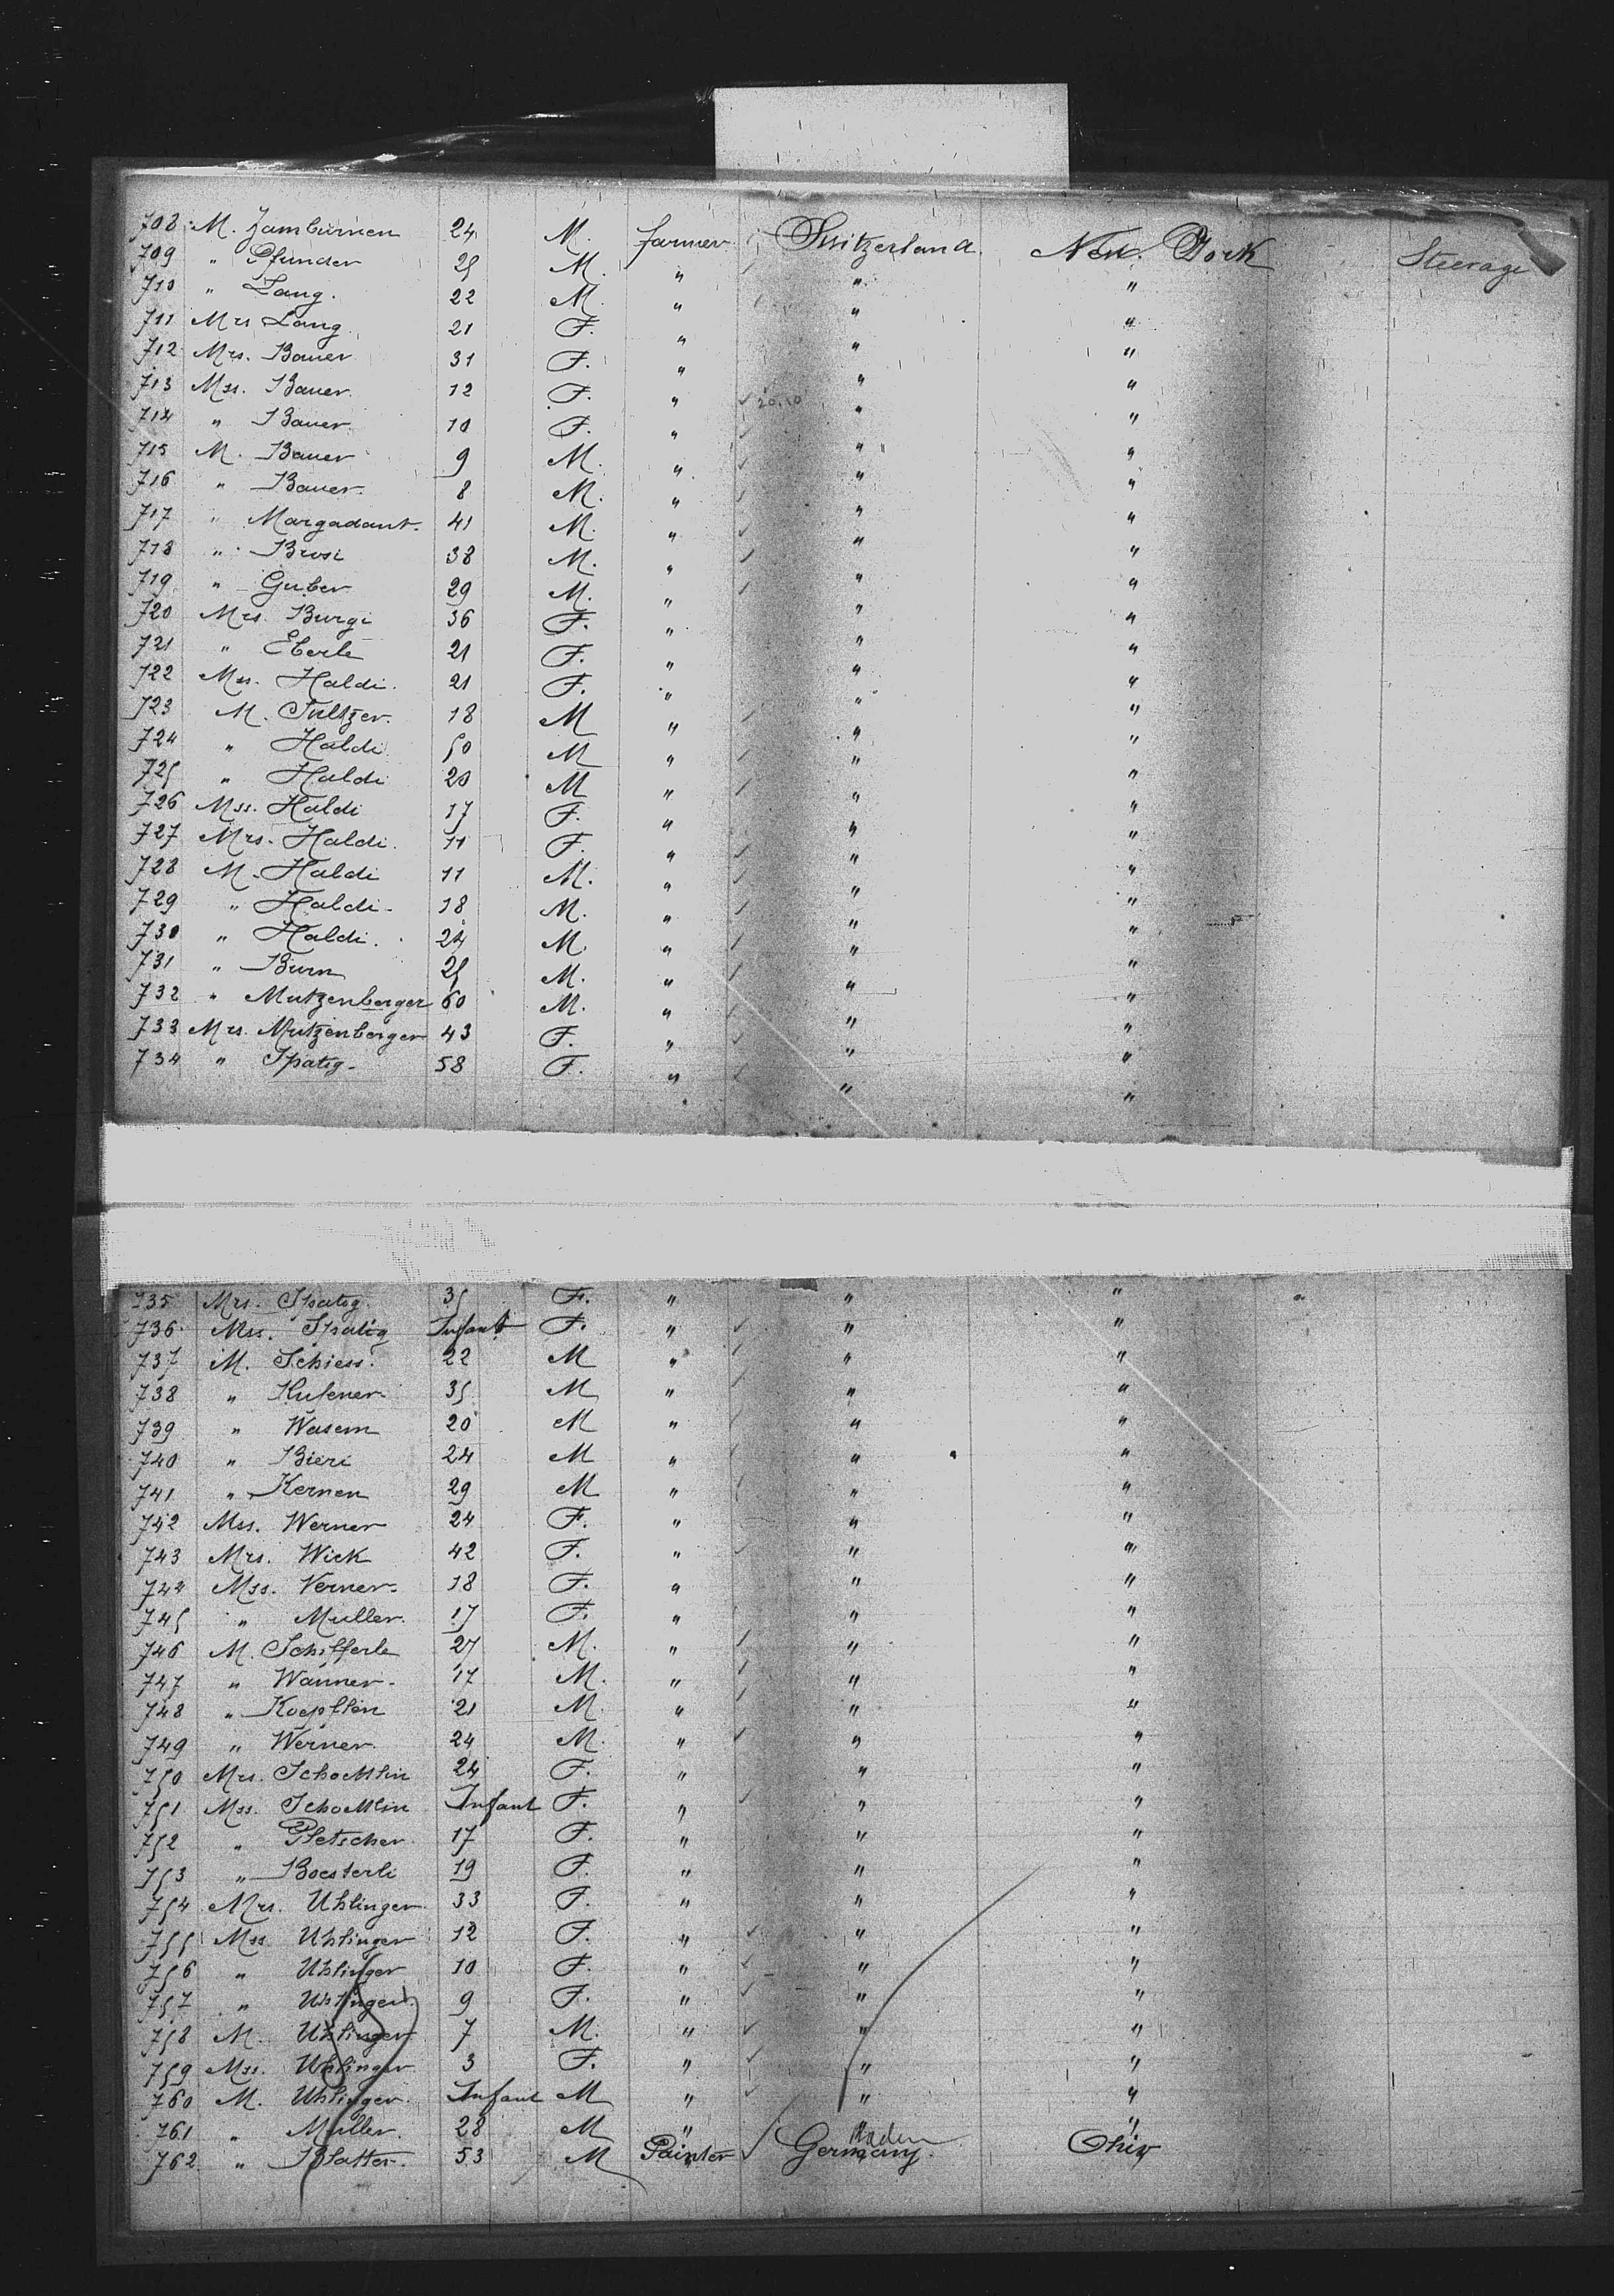 708 M. Zamburnen 24 M. farmer Switzerland. New. York Steerage
709 " Pfunder 25 M. " " "
710 " Lang. 22 M. " " "
711 Mrs Lang 21 F. " " "
712 Mrs. Bauer 31 F. " " "
713 Mss. Bauer. 12 F. " " "
714 " Bauer 10 F. " " "
715 M. Bauer 9 M. " " "
716 " Bauer. 8 M. " " "
717 " Margadant. 41 M. " " "
718 " Brosi 38 M. " " "
719 " Guber 29 M. " " "
720 Mrs. Burgi 36 F. " " "
721 " Eberle 21 F. " " "
722 Mss. Haldi. 21 F. " " "
723 M. Sultzer. 18 M " " "
724 " Haldi 50 M " " "
725 " Haldi 20 M " " "
726 Mss. Haldi 17 F. " " "
727 Mrs. Haldi. 11 F. " " "
728 M. Haldi 11 M. " " "
729 " Haldi. 18 M. " " "
730 " Haldi. 24 M. " " "
731 " Burn 25 M. " " "
732 " Mutzenberger 60 M. " " "
733 Mrs. Mutzenberger 43 F. " " "
734 " Spatig. 58 F. " " "
735 Mrs. Spatig. 35 F. " " "
736 Mss. Spatig Infant F. " " "
737 M. Schiess. 22 M " " "
738 " Hufener. 35 M " " "
739 " Wasem 20 M " " "
740 " Bieri 24 M " " "
741 " Kernen 29 M " " "
742 Mss. Werner 24 F. " " "
743 Mrs. Wick 42 F. " " "
744 Mss. Verner. 18 F. " " "
745 " Muller. 17 F. " " "
746 M. Schifferle 27 M. " " "
747 " Wanner. 17 M. " " "
748 " Koepflin 21 M. " " "
749 " Werner. 24 M. " " "
750 Mrs. Schoettlin 24 F. " " "
751 Mss. Schoettlin Infant F. " " "
752 " Pletscher 17 F. " " "
753 " Boesterli 19 F. " " "
754 Mrs. Uhlinger 33 F. " " "
755 Mss Uhlinger 12 F. " " "
756 " Uhlinger 10 F. " " "
757 " Uhlinger. 9 F. " " "
758 M. Uhlinger 7 M. " " "
759 Mss. Uhlinger 3 F. " " "
760 M. Uhlinger. Infant M " " "
761 " Muller. 28 M " Baden "
762 " Blatter. 53 M Painter Germany. Ohio